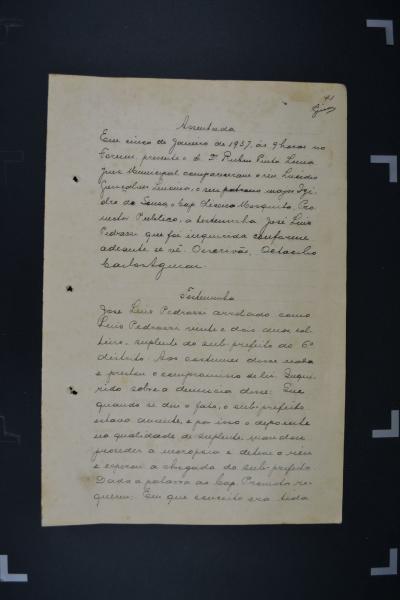 41
Assentada
Em cinco de Janeiro de 1937, ás 9 horas no
Forum, presente o Dr Ruben Pinto Lima
Juiz Municipal compareceram o réu Lucidio
Gonçalves Luciano, o seu patrono major Izi-
dro de Souza, Cap. Mosquito, Pro-
motor Publico, a testemunha José Luis
Pedrazzi que foi inquirida conforme
adeante se vê. O escrivão, Octacilio
Carlos Aguiar.
Testemunha
José Luis Pedrazzi arrolado como
Luis Pedrazzi vinte e dois anos sol-
teiro, suplente do sub-prefeito do 6º
distrito. Aos costumes disse nada
e prestou o compromisso de lei. Inqui-
rido sobre a denuncia disse: Que
quando se deu o fato, o sub-prefeito
estava ausente, e por isso o depoente
na qualidade de suplente mandou
proceder a necropsia e deteve o réu
e esperou a chegada do sub-prefeito
Dada a palavra ao Cap. Promotor re-
quereu: Em que conceito era tida